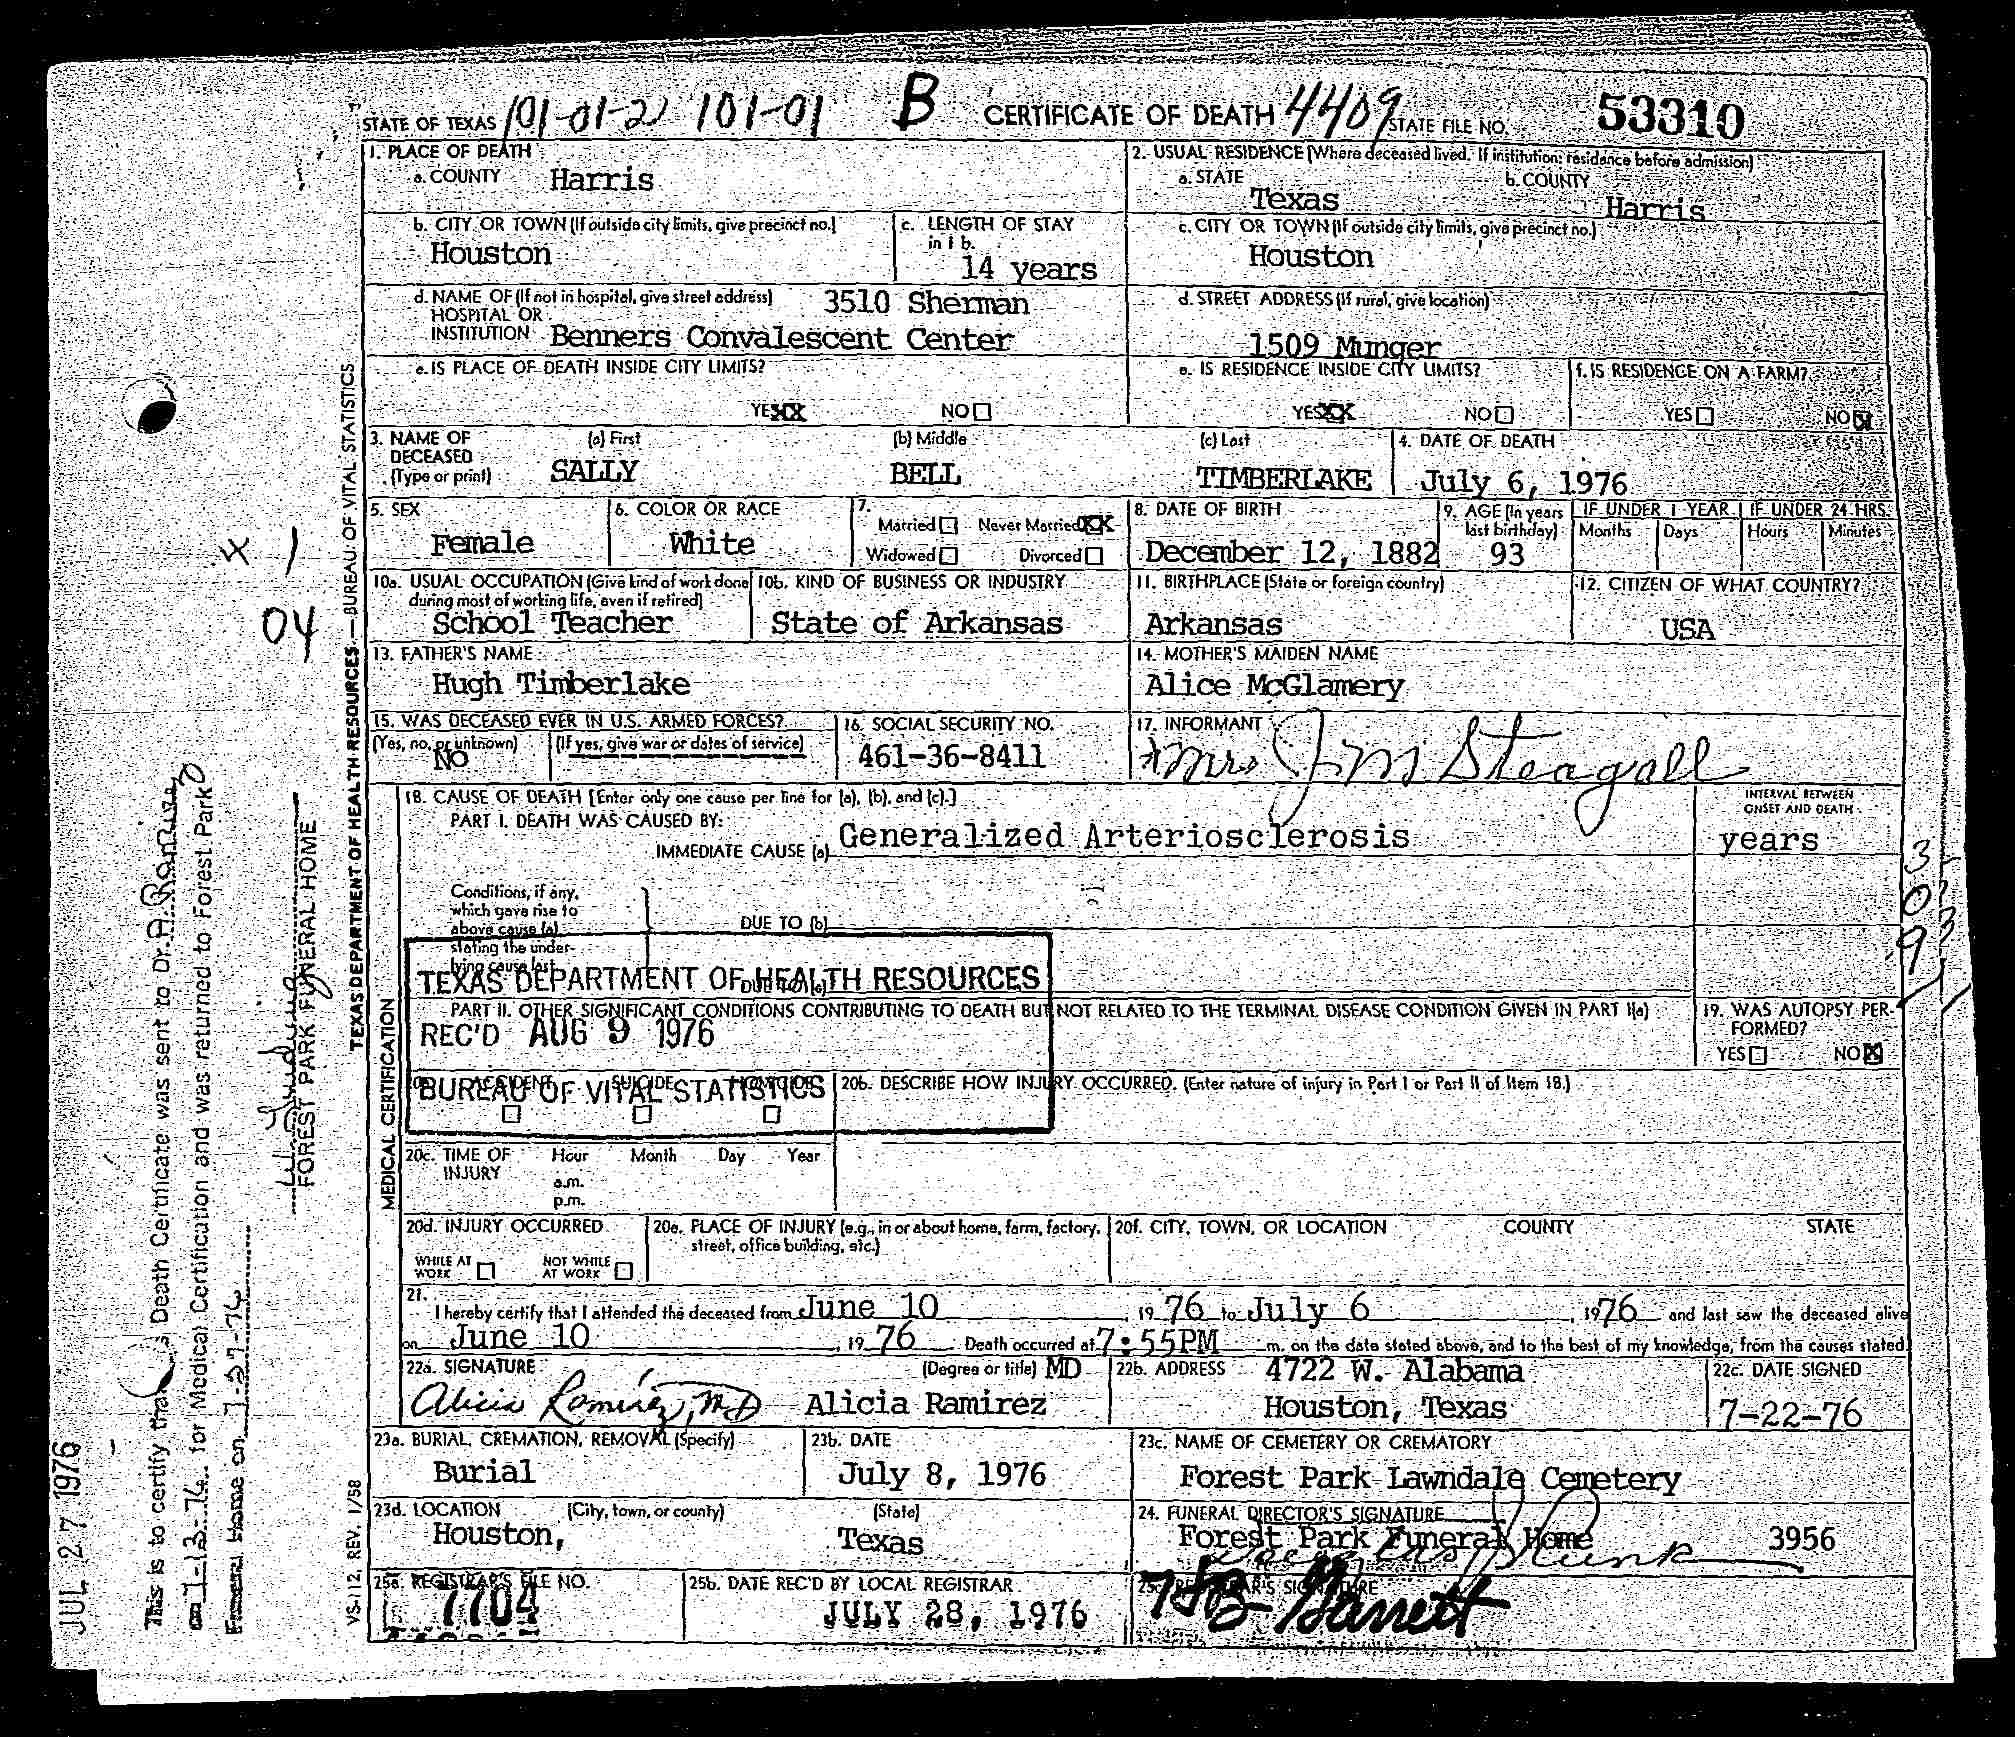 STATE OF TEXAS 101-01-2 101-01 B CERTIFICATE OF DEATH 4409 STATE FILE NO. 53310
1. PLACE OF DEATH
a. COUNTY Harris
2. USUAL RESIDENCE (Where deceased lived. If institution: residence before admission)
a. STATE Texas
b. COUNTY Harris
b. CITY OR TOWN (If outside city limits, give precinct no.)
Houston
c. LENGTH OF STAY
in 1 b.
14 years
c. CITY OR TOWN (If outside city limits, give precinct no.)
Houston
d. NAME OF (If not in hospital, give street address) 3510 Sherman
HOSPITAL OR
INSTITUTION Benners Convalescent Center
d. STREET ADDRESS (If rural, give location)
1509 Munger
e. IS PLACE OF DEATH INSIDE CITY LIMITS?
YES XX NO
e. IS RESIDENCE INSIDE CITY LIMITS?
YES XX NO
f. IS RESIDENCE ON A FARM?
YES NO X
3. NAME OF
DECEASED
(Type or print)
(a) First
SALLY
(b) Middle
BELL
(c) Last
TIMBERLAKE
4. DATE OF DEATH
July 6, 1976
5. SEX
Female
6. COLOR OR RACE
White
7.
Married Never Married XX
Widowed Divorced
8. DATE OF BIRTH
December 12, 1882
9. AGE (In years
last birthday)
93
IF UNDER 1 YEAR
Months Days
IF UNDER 24 HRS.
Hours Minutes
10a. USUAL OCCUPATION (Give kind of work done
during most of working life, even if retired)
School Teacher
10b. KIND OF BUSINESS OR INDUSTRY
State of Arkansas
11. BIRTHPLACE (State or foreign country)
Arkansas
12. CITIZEN OF WHAT COUNTRY?
USA
13. FATHER'S NAME
Hugh Timberlake
14. MOTHER'S MAIDEN NAME
Alice McGlamery
15. WAS DECEASED EVER IN U.S. ARMED FORCES?
(Yes, no, or unknown) (If yes, give war or dates of service)
No
16. SOCIAL SECURITY NO.
461-36-8411
17. INFORMANT
Mrs J M Steagall
18. CAUSE OF DEATH [Enter only one cause per line for (a), (b), and (c).]
PART I. DEATH WAS CAUSED BY:
IMMEDIATE CAUSE (a) Generalized Arteriosclerosis
INTERVAL BETWEEN
ONSET AND DEATH
years
Conditions, if any,
which gave rise to
above cause (a)
stating the under-
lying cause last.
DUE TO (b)
DUE TO (c)
TEXAS DEPARTMENT OF HEALTH RESOURCES
REC'D AUG 9 1976
BUREAU OF VITAL STATISTICS
PART II. OTHER SIGNIFICANT CONDITIONS CONTRIBUTING TO DEATH BUT NOT RELATED TO THE TERMINAL DISEASE CONDITION GIVEN IN PART I(a)
19. WAS AUTOPSY PER-
FORMED?
YES NO X
ACCIDENT SUICIDE HOMICIDE
20b. DESCRIBE HOW INJURY OCCURRED. (Enter nature of injury in Part I or Part II of Item 18.)
20c. TIME OF Hour Month Day Year
INJURY
a.m.
p.m.
20d. INJURY OCCURRED
WHILE AT
WORK
NOT WHILE
AT WORK
20e. PLACE OF INJURY (e.g., in or about home, farm, factory,
street, office building, etc.)
20f. CITY, TOWN, OR LOCATION COUNTY STATE
21.
I hereby certify that I attended the deceased from June 10 1976 to July 6 1976 and last saw the deceased alive
on June 10 1976 Death occurred at 7:55PM m. on the date stated above, and to the best of my knowledge, from the causes stated.
22a. SIGNATURE (Degree or title) MD
Alicia Ramirez, MD Alicia Ramirez
22b. ADDRESS 4722 W. Alabama
Houston, Texas
22c. DATE SIGNED
7-22-76
23a. BURIAL, CREMATION, REMOVAL (Specify)
Burial
23b. DATE
July 8, 1976
23c. NAME OF CEMETERY OR CREMATORY
Forest Park Lawndale Cemetery
23d. LOCATION (City, town, or county) (State)
Houston, Texas
24. FUNERAL DIRECTOR'S SIGNATURE
Forest Park Funeral Home 3956
25a. REGISTRAR'S FILE NO.
7704
25b. DATE REC'D BY LOCAL REGISTRAR
JULY 28, 1976
25c. REGISTRAR'S SIGNATURE
Garrett
TEXAS DEPARTMENT OF HEALTH RESOURCES—BUREAU OF VITAL STATISTICS
MEDICAL CERTIFICATION
VS-112, REV. 1/58
This is to certify that Death Certificate was sent to Dr. A. Ramirez
on 7-13-76 for Medical Certification and was returned to Forest Park
Funeral Home on 7-27-76
FOREST PARK FUNERAL HOME
JUL 27 1976
X 1
04